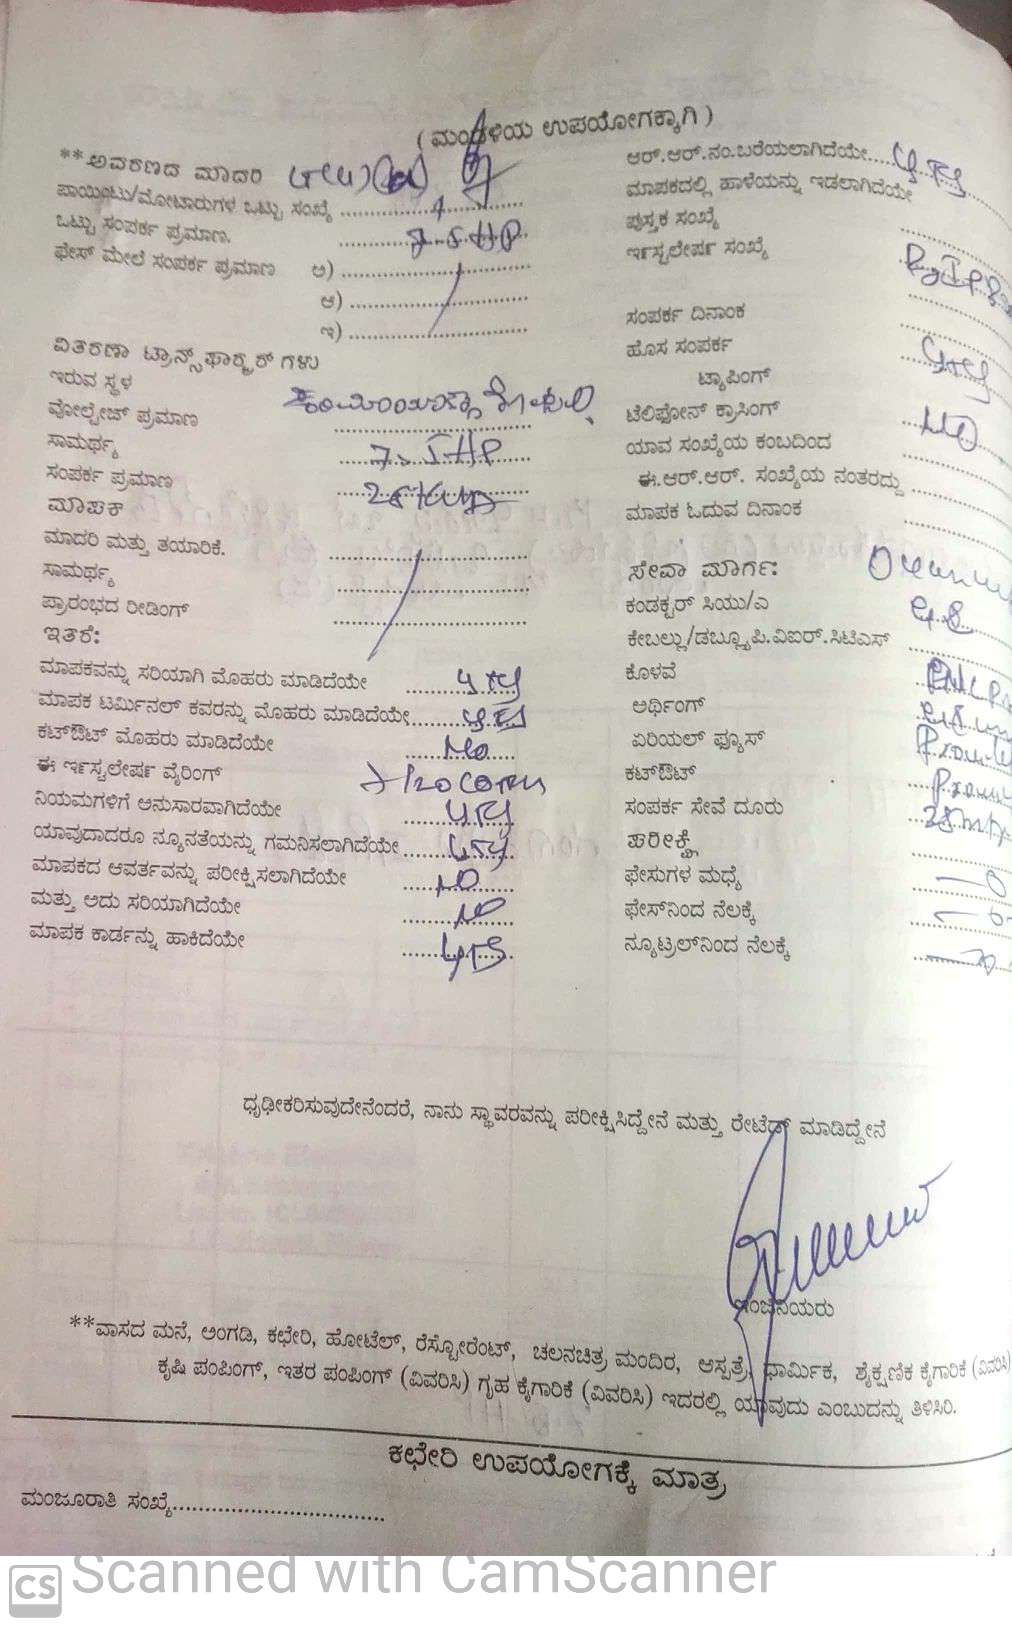 ( ಮಂಡಳಿಯ ಉಪಯೋಗಕ್ಕಾಗಿ )
**ಆವರಣದ ಮಾದರಿ
ಪಾಯಿಂಟು/ಮೋಟಾರುಗಳ ಒಟ್ಟು ಸಂಖ್ಯೆ ........ 1
ಒಟ್ಟು ಸಂಪರ್ಕ ಪ್ರಮಾಣ. ........ 7.5HP
ಫೇಸ್ ಮೇಲೆ ಸಂಪರ್ಕ ಪ್ರಮಾಣ ಅ) ........
ಆ) ........
ಇ) ........
ವಿತರಣಾ ಟ್ರಾನ್ಸ್‌ಫಾರ್ಮರ್ ಗಳು
ಇರುವ ಸ್ಥಳ
ವೋಲ್ಟೇಜ್ ಪ್ರಮಾಣ ........
ಸಾಮರ್ಥ್ಯ ........ 7.5HP
ಸಂಪರ್ಕ ಪ್ರಮಾಣ ........ 25KVA
ಮಾಪಕ
ಮಾದರಿ ಮತ್ತು ತಯಾರಿಕೆ. ........
ಸಾಮರ್ಥ್ಯ ........
ಪ್ರಾರಂಭದ ರೀಡಿಂಗ್ ........
ಇತರೆ:
ಮಾಪಕವನ್ನು ಸರಿಯಾಗಿ ಮೊಹರು ಮಾಡಿದೆಯೇ ........ Yes
ಮಾಪಕ ಟರ್ಮಿನಲ್ ಕವರನ್ನು ಮೊಹರು ಮಾಡಿದೆಯೇ ........ Yes
ಕಟ್‌ಔಟ್ ಮೊಹರು ಮಾಡಿದೆಯೇ ........ No
ಈ ಇನ್ಸ್ಟಲೇಷನ್ ವೈರಿಂಗ್
ನಿಯಮಗಳಿಗೆ ಅನುಸಾರವಾಗಿದೆಯೇ ........ Yes
ಯಾವುದಾದರೂ ನ್ಯೂನತೆಯನ್ನು ಗಮನಿಸಲಾಗಿದೆಯೇ ........ Yes
ಮಾಪಕದ ಆವರ್ತವನ್ನು ಪರೀಕ್ಷಿಸಲಾಗಿದೆಯೇ ........ NO
ಮತ್ತು ಅದು ಸರಿಯಾಗಿದೆಯೇ ........ NO
ಮಾಪಕ ಕಾರ್ಡನ್ನು ಹಾಕಿದೆಯೇ ........ Yes
ಆರ್.ಆರ್.ನಂ.ಬರೆಯಲಾಗಿದೆಯೇ ........ Yes
ಮಾಪಕದಲ್ಲಿ ಹಾಳೆಯನ್ನು ಇಡಲಾಗಿದೆಯೇ
ಪುಸ್ತಕ ಸಂಖ್ಯೆ ........
ಇನ್ಸ್ಟಲೇಷನ್ ಸಂಖ್ಯೆ ........
ಸಂಪರ್ಕ ದಿನಾಂಕ ........
ಹೊಸ ಸಂಪರ್ಕ ........ Yes
ಟ್ಯಾಪಿಂಗ್
ಟೆಲಿಫೋನ್ ಕ್ರಾಸಿಂಗ್ ........ NO
ಯಾವ ಸಂಖ್ಯೆಯ ಕಂಬದಿಂದ ........
ಈ.ಆರ್.ಆರ್. ಸಂಖ್ಯೆಯ ನಂತರದ್ದು ........
ಮಾಪಕ ಓದುವ ದಿನಾಂಕ ........
ಸೇವಾ ಮಾರ್ಗ:
ಕಂಡಕ್ಟರ್ ಸಿಯು/ಎ ........
ಕೇಬಲ್ಲು/ಡಬ್ಲ್ಯೂ.ಪಿ.ವಿಐಆರ್.ಸಿಟಿಎಸ್ ........
ಕೊಳವೆ ........
ಅರ್ಥಿಂಗ್ ........
ಏರಿಯಲ್ ಫ್ಯೂಸ್ ........
ಕಟ್‌ಔಟ್ ........
ಸಂಪರ್ಕ ಸೇವೆ ದೂರು ........
ಪರೀಕ್ಷೆ ........
ಫೇಸುಗಳ ಮಧ್ಯೆ ........
ಫೇಸ್‌ನಿಂದ ನೆಲಕ್ಕೆ ........
ನ್ಯೂಟ್ರಲ್‌ನಿಂದ ನೆಲಕ್ಕೆ ........
ಧೃಢೀಕರಿಸುವುದೇನೆಂದರೆ, ನಾನು ಸ್ಥಾವರವನ್ನು ಪರೀಕ್ಷಿಸಿದ್ದೇನೆ ಮತ್ತು ರೇಟೆಡ್ ಮಾಡಿದ್ದೇನೆ
ಇಂಜಿನಿಯರು
**ವಾಸದ ಮನೆ, ಅಂಗಡಿ, ಕಛೇರಿ, ಹೋಟೆಲ್, ರೆಸ್ಟೋರೆಂಟ್, ಚಲನಚಿತ್ರ ಮಂದಿರ, ಆಸ್ಪತ್ರೆ, ಧಾರ್ಮಿಕ, ಶೈಕ್ಷಣಿಕ ಕೈಗಾರಿಕೆ (ವಿವರಿಸಿ)
ಕೃಷಿ ಪಂಪಿಂಗ್, ಇತರ ಪಂಪಿಂಗ್ (ವಿವರಿಸಿ) ಗೃಹ ಕೈಗಾರಿಕೆ (ವಿವರಿಸಿ) ಇದರಲ್ಲಿ ಯಾವುದು ಎಂಬುದನ್ನು ತಿಳಿಸಿರಿ.
ಕಛೇರಿ ಉಪಯೋಗಕ್ಕೆ ಮಾತ್ರ
ಮಂಜೂರಾತಿ ಸಂಖ್ಯೆ................................
CS Scanned with CamScanner